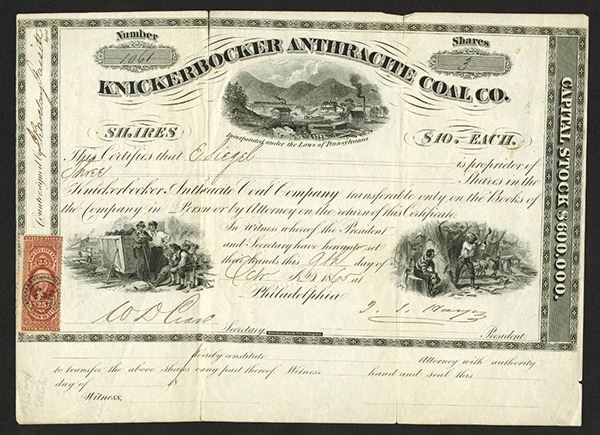 Number
1061
Shares
3
KNICKERBOCKER ANTHRACITE COAL CO.
Incorporated under the Laws of Pennsylvania
SHARES
$10. EACH.
This Certifies that E Siegel is proprietor of
Three Shares in the
Knickerbocker Anthracite Coal Company transferable only on the Books of
the Company in Person or by Attorney on the return of this Certificate.
In Witness whereof the President
and Secretary have hereunto set
their hands this 9th day of
Octo 1865 at
Philadelphia
Secretary.
President.
hereby constitute Attorney with authority
to transfer the above shares or any part thereof Witness hand and seal this
day of
Witness.
CAPITAL STOCK $600,000.
Countersigned by
25
25